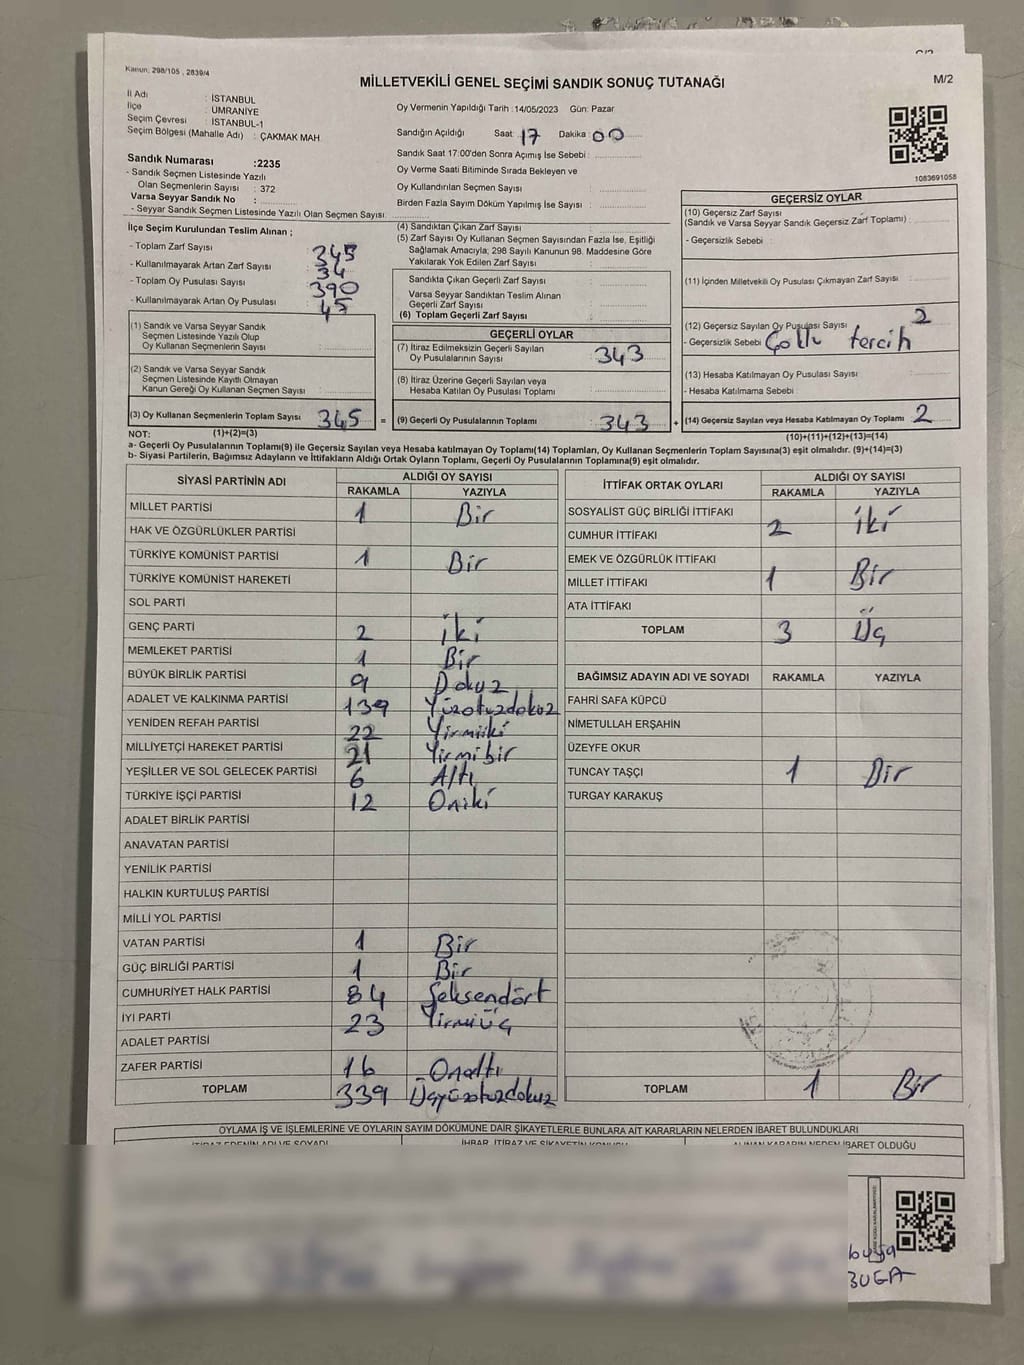 Kanun: 298/105 , 2839/4
MİLLETVEKİLİ GENEL SEÇİMİ SANDIK SONUÇ TUTANAĞI
M/2
İl Adı : İSTANBUL
İlçe : ÜMRANİYE
Seçim Çevresi : İSTANBUL-1
Seçim Bölgesi (Mahalle Adı) : ÇAKMAK MAH
Sandık Numarası :2235
- Sandık Seçmen Listesinde Yazılı
Olan Seçmenlerin Sayısı : 372
Varsa Seyyar Sandık No :
- Seyyar Sandık Seçmen Listesinde Yazılı Olan Seçmen Sayısı
Oy Vermenin Yapıldığı Tarih :14/05/2023 Gün: Pazar
Sandığın Açıldığı Saat: 17 Dakika 00
Sandık Saat 17:00'den Sonra Açımış İse Sebebi :
Oy Verme Saati Bitiminde Sırada Bekleyen ve
Oy Kullandırılan Seçmen Sayısı :
Birden Fazla Sayım Döküm Yapılmış İse Sayısı :
1083691058
İlçe Seçim Kurulundan Teslim Alınan ;
- Toplam Zarf Sayısı 345
- Kullanılmayarak Artan Zarf Sayısı 34
- Toplam Oy Pusulası Sayısı 390
- Kullanılmayarak Artan Oy Pusulası 45
(1) Sandık ve Varsa Seyyar Sandık
Seçmen Listesinde Yazılı Olup
Oy Kullanan Seçmenlerin Sayısı :
(2) Sandık ve Varsa Seyyar Sandık
Seçmen Listesinde Kayıtlı Olmayan
Kanun Gereği Oy Kullanan Seçmen Sayısı :
(3) Oy Kullanan Seçmenlerin Toplam Sayısı 345 =
(1)+(2)=(3)
(4) Sandıktan Çıkan Zarf Sayısı :
(5) Zarf Sayısı Oy Kullanan Seçmen Sayısından Fazla İse, Eşitliği
Sağlamak Amacıyla; 298 Sayılı Kanunun 98. Maddesine Göre
Yakılarak Yok Edilen Zarf Sayısı :
Sandıkta Çıkan Geçerli Zarf Sayısı :
Varsa Seyyar Sandıktan Teslim Alınan
Geçerli Zarf Sayısı :
(6) Toplam Geçerli Zarf Sayısı :
GEÇERLİ OYLAR
(7) İtiraz Edilmeksizin Geçerli Sayılan
Oy Pusulalarının Sayısı 343
(8) İtiraz Üzerine Geçerli Sayılan veya
Hesaba Katılan Oy Pusulası Toplamı :
(9) Geçerli Oy Pusulalarının Toplamı : 343 +
GEÇERSİZ OYLAR
(10) Geçersiz Zarf Sayısı
(Sandık ve Varsa Seyyar Sandık Geçersiz Zarf Toplamı) :
- Geçersizlik Sebebi :
(11) İçinden Milletvekili Oy Pusulası Çıkmayan Zarf Sayısı :
(12) Geçersiz Sayılan Oy Pusulası Sayısı 2
- Geçersizlik Sebebi Çoklu tercih
(13) Hesaba Katılmayan Oy Pusulası Sayısı :
- Hesaba Katılmama Sebebi :
(14) Geçersiz Sayılan veya Hesaba Katılmayan Oy Toplamı 2
(10)+(11)+(12)+(13)=(14)
NOT:
a- Geçerli Oy Pusulalarının Toplamı(9) ile Geçersiz Sayılan veya Hesaba katılmayan Oy Toplamı(14) Toplamları, Oy Kullanan Seçmenlerin Toplam Sayısına(3) eşit olmalıdır. (9)+(14)=(3)
b- Siyasi Partilerin, Bağımsız Adayların ve İttifakların Aldığı Ortak Oyların Toplamı, Geçerli Oy Pusulalarının Toplamına(9) eşit olmalıdır.
SİYASİ PARTİNİN ADI ALDIĞI OY SAYISI
RAKAMLA YAZIYLA
MİLLET PARTİSİ 1 Bir
HAK VE ÖZGÜRLÜKLER PARTİSİ
TÜRKİYE KOMÜNİST PARTİSİ 1 Bir
TÜRKİYE KOMÜNİST HAREKETİ
SOL PARTİ
GENÇ PARTİ 2 İki
MEMLEKET PARTİSİ 1 Bir
BÜYÜK BİRLİK PARTİSİ 9 Dokuz
ADALET VE KALKINMA PARTİSİ 139 Yüzotuzdokuz
YENİDEN REFAH PARTİSİ 22 Yirmiiki
MİLLİYETÇİ HAREKET PARTİSİ 21 Yirmibir
YEŞİLLER VE SOL GELECEK PARTİSİ 6 Altı
TÜRKİYE İŞÇİ PARTİSİ 12 Oniki
ADALET BİRLİK PARTİSİ
ANAVATAN PARTİSİ
YENİLİK PARTİSİ
HALKIN KURTULUŞ PARTİSİ
MİLLİ YOL PARTİSİ
VATAN PARTİSİ 1 Bir
GÜÇ BİRLİĞİ PARTİSİ 1 Bir
CUMHURİYET HALK PARTİSİ 84 Seksendört
İYİ PARTİ 23 Yirmiüç
ADALET PARTİSİ
ZAFER PARTİSİ 16 Onaltı
TOPLAM 339 Üçyüzotuzdokuz
İTTİFAK ORTAK OYLARI ALDIĞI OY SAYISI
RAKAMLA YAZIYLA
SOSYALİST GÜÇ BİRLİĞİ İTTİFAKI
CUMHUR İTTİFAKI 2 İki
EMEK VE ÖZGÜRLÜK İTTİFAKI
MİLLET İTTİFAKI 1 Bir
ATA İTTİFAKI
TOPLAM 3 Üç
BAĞIMSIZ ADAYIN ADI VE SOYADI RAKAMLA YAZIYLA
FAHRİ SAFA KÜPCÜ
NİMETULLAH ERŞAHİN
ÜZEYFE OKUR
TUNCAY TAŞÇI 1 Bir
TURGAY KARAKUŞ
TOPLAM 1 Bir
OYLAMA İŞ VE İŞLEMLERİNE VE OYLARIN SAYIM DÖKÜMÜNE DAİR ŞİKAYETLERLE BUNLARA AİT KARARLARIN NELERDEN İBARET BULUNDUKLARI
İTİRAZ EDENİN ADI VE SOYADI İHBAR, İTİRAZ VE ŞİKAYETİN KONUSU ALINAN KARARIN NEDEN İBARET OLDUĞU
BUGA